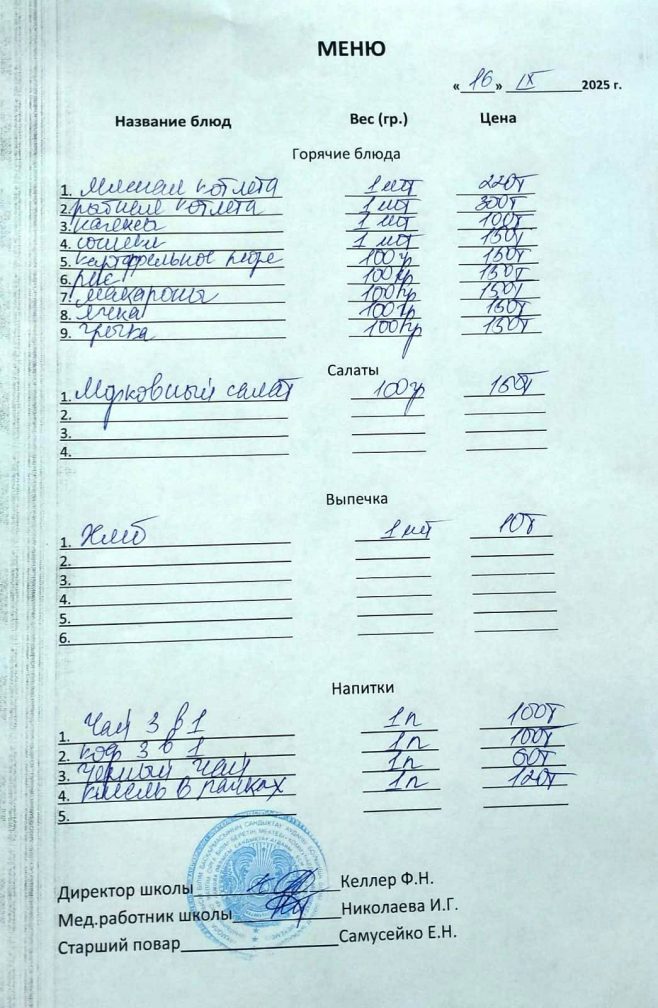 МЕНЮ
« 16 » IX 2025 г.
Название блюд Вес (гр.) Цена
Горячие блюда
1. Мясная котлета 1 шт 220т
2. рыбная котлета 1 шт 300т
3. 1 шт 100т
4. сосиски 1 шт 150т
5. картофельное пюре 100гр 150т
6. рис 100гр 150т
7. макароны 100гр 150т
8. ячка 100гр 150т
9. гречка 100гр 150т
Салаты
1. Морковный салат 100гр 150т
2.
3.
4.
Выпечка
1. Хлеб 1 шт 10т
2.
3.
4.
5.
6.
Напитки
1. Чай 3 в 1 1п 100т
2. кофе 3 в 1 1п 100т
3. чёрный чай 1п 60т
4. кисель в пачках 1п 120т
5.
Директор школы Келлер Ф.Н.
Мед.работник школы Николаева И.Г.
Старший повар Самусейко Е.Н.